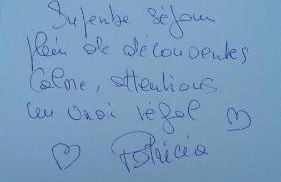 Superbe séjour
plein de découvertes
Calme, attentions
un vrai régal
Patricia